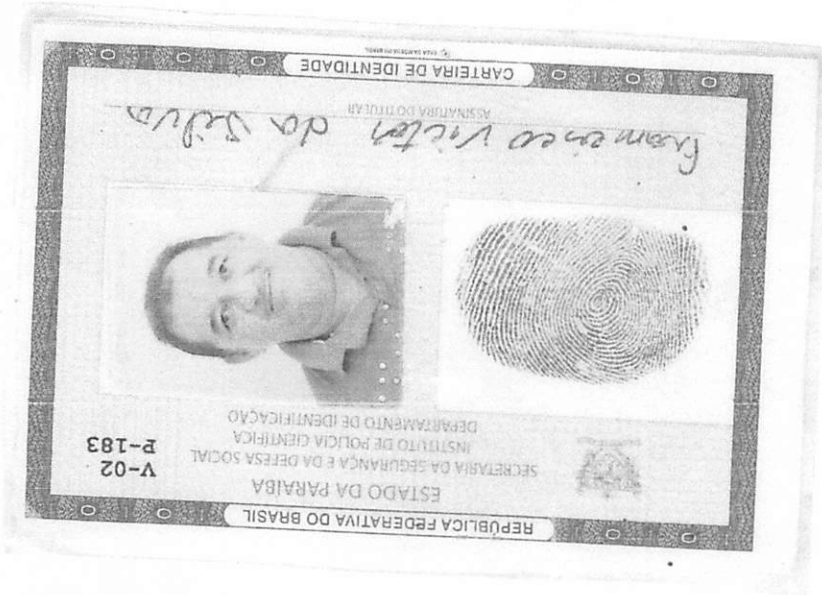 REPÚBLICA FEDERATIVA DO BRASIL
ESTADO DA PARAIBA
SECRETARIA DA SEGURANÇA E DA DEFESA SOCIAL
INSTITUTO DE POLÍCIA CIENTÍFICA
DEPARTAMENTO DE IDENTIFICAÇÃO
V-02
P-183
Francisco Victor da Silva
ASSINATURA DO TITULAR
CARTEIRA DE IDENTIDADE